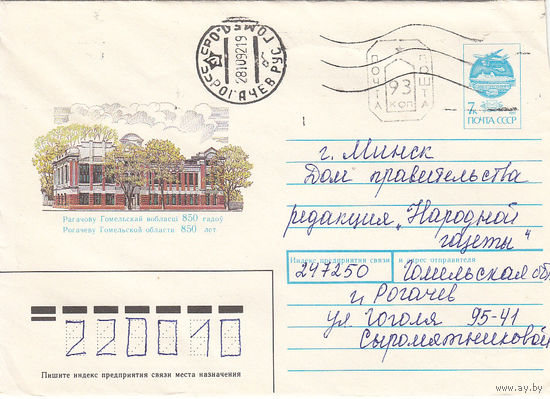 СССР РОГАЧЕВ ГОМЕЛ. О. РУС
28109219
ПОЧТА
93
КОП
ПОШТА
7к
ПОЧТА СССР
Рагачову Гомельскай вобласці 850 гадоў
Рогачеву Гомельской области 850 лет
г. Минск
Дом правительства
редакция „Народной
газеты"
Индекс предприятия связи и адрес отправителя
247250 Гомельская об
г. Рогачев
ул Гоголя 95-41
Сыромяжниковой
220010
Пишите индекс предприятия связи места назначения
www.ay.by